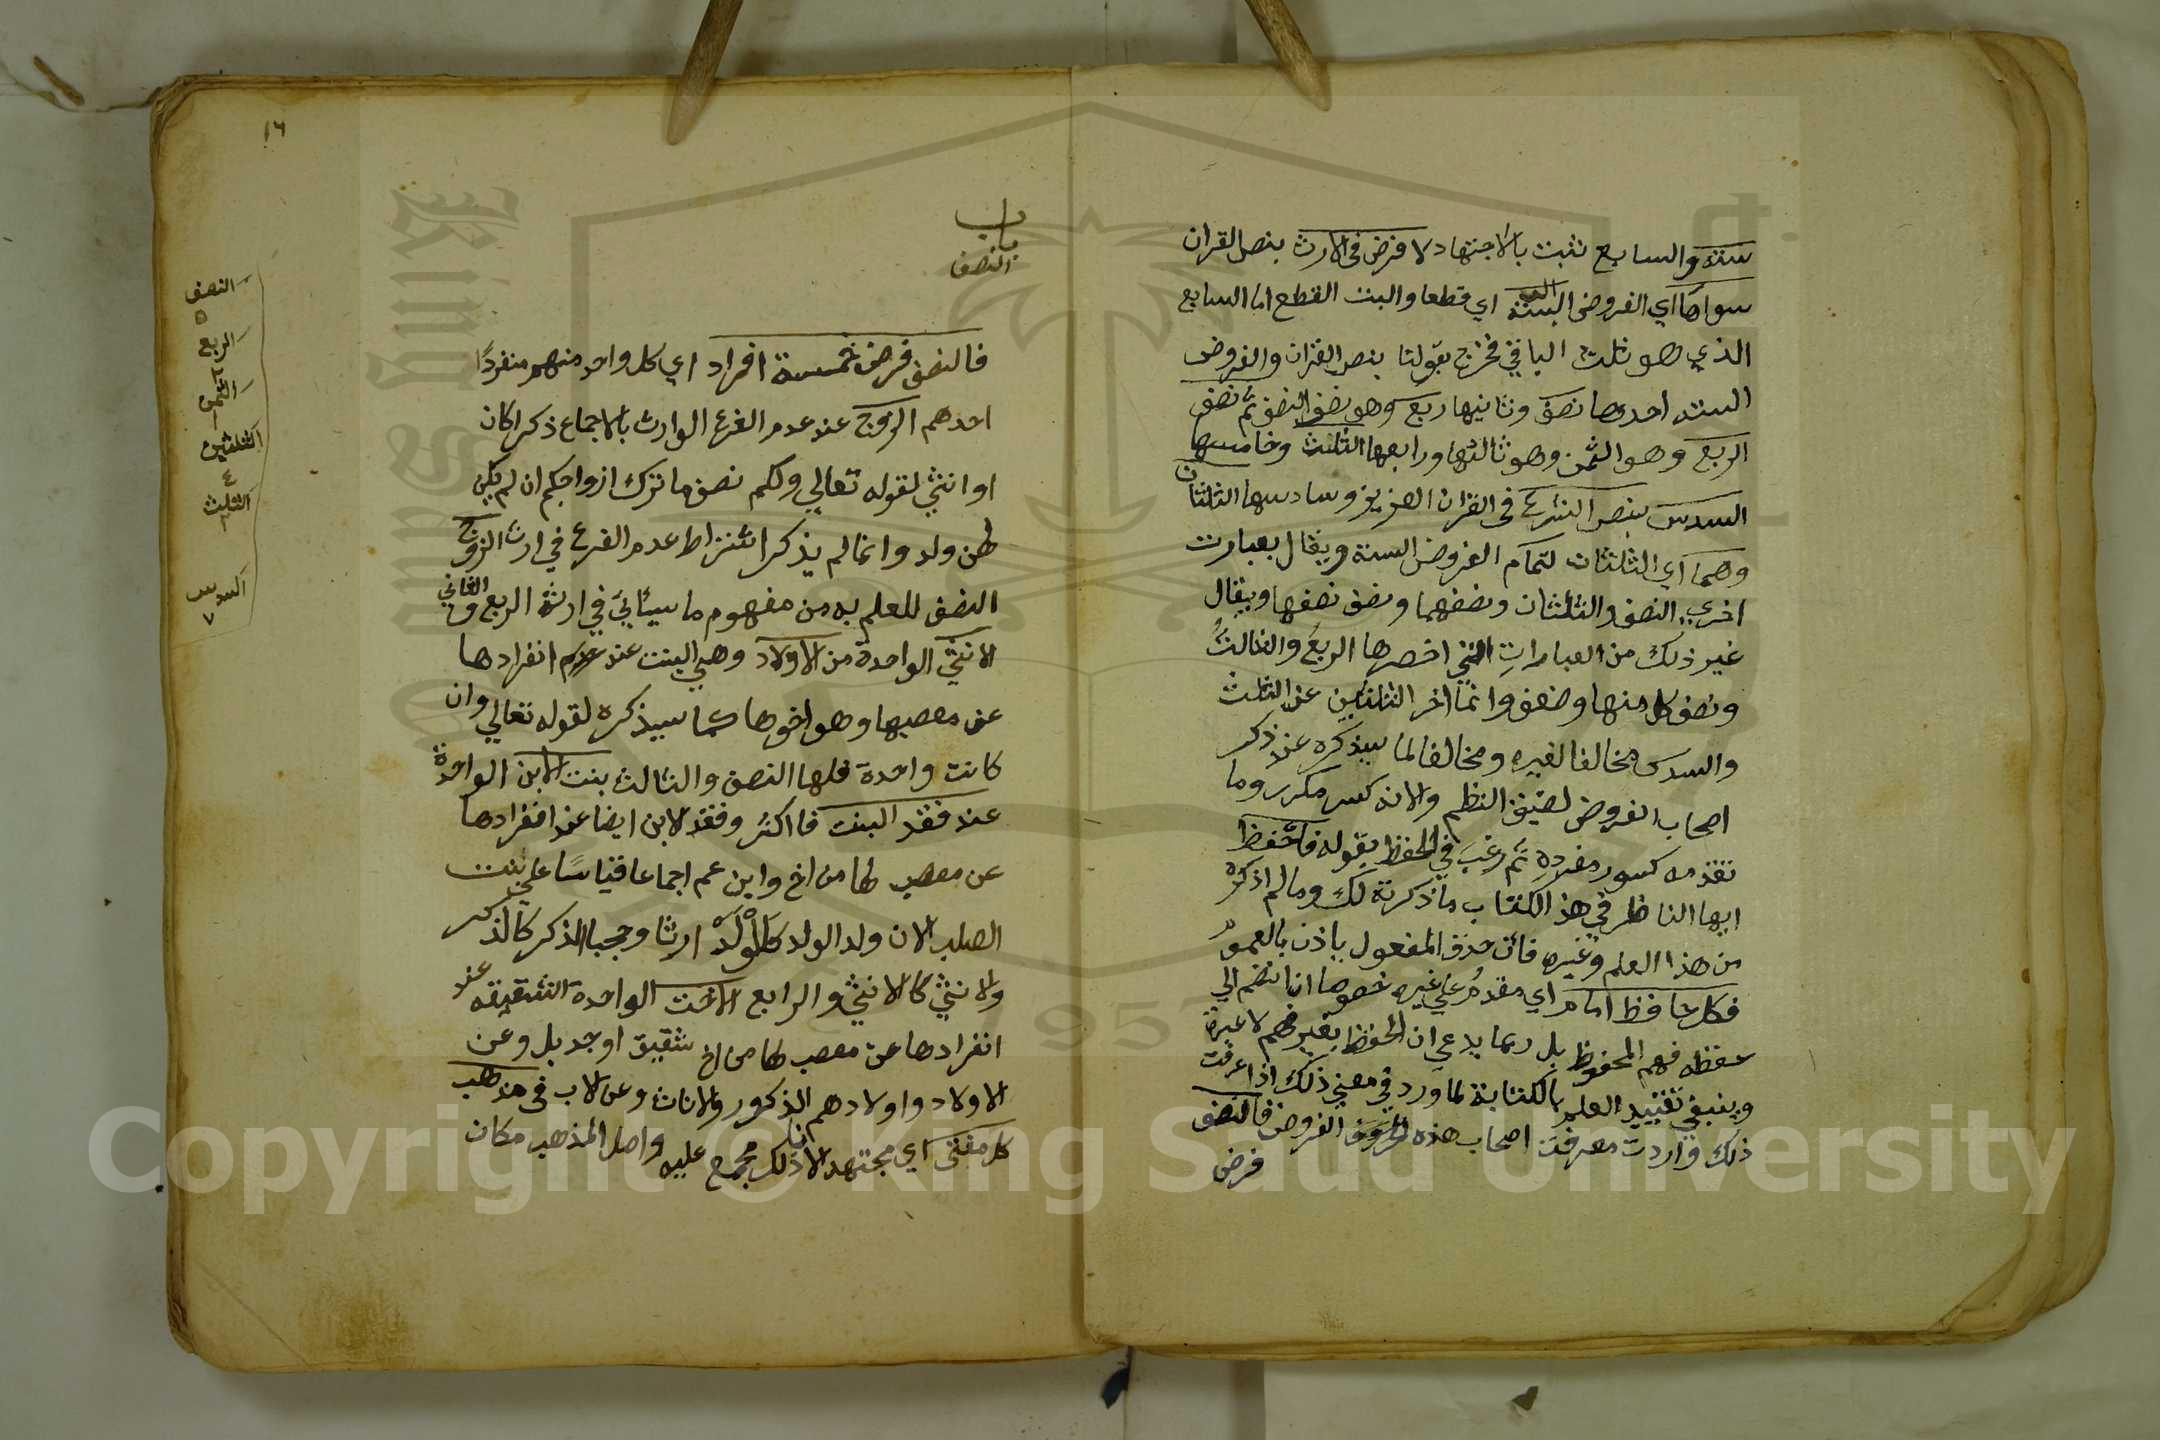 ستة والسابع تثبت بالاجتهاد لا فرض في الارث بنص القران
سواها اي الفروض الستة البتة اي قطعا والبت القطع اما السابع
الذي هو ثلث الباقي فخرج بقولنا بنص القران والفروض
الستة احدها نصف وثانيها ربع وهو نصف النصف ثم نصف
الربع وهو الثمن وهو ثالثها ورابعها الثلث وخامسها
السدس بنص الشرع في القران العزيز وسادسها الثلثان
وهما اي الثلثان لتمام الفروض الستة ويقال بعبارت
اخري النصف والثلثان ونصفهما ونصف نصفها ويقال
غير ذلك من العبارات التي اخصرها الربع والثالث
ونصف كل منها وضعف وانما اخر الثلثين عن الثلث
والسدس مخالفا لغيره ومخالفا لما سيذكره عند ذكر
اصحاب الفروض لضيق النظم ولانه كسر مكرر وما
تقدمه كسور مفرده ثم رغب في الحفظ بقوله فاحفظ
ايها الناظر في هذا الكتاب ما ذكرته لك وما لم اذكره
من هذا العلم وغيره فان حذف المفعول ياذن بالعموم
فكل حافظ امام اي مقدم علي غيره خصوصا ان انضم الي
حفظه فهم المحفوظ بل ربما يدعي ان الحفظ بغير فهم لا عبرة
وينبغي تقييد العلم بالكتابة لما ورد في معني ذلك اذا عرفت
ذلك واردت معرفت اصحاب هذه الفروض فالنصف
فرض
١٦
باب
النصف
فالنصف فرض خمسة افراد اي كل واحد منهم منفردًا
احدهم الزوج عند عدم الفرع الوارث بالاجماع ذكرا كان
او انثي لقوله تعالي ولكم نصف ما ترك ازواجكم ان لم يكن
لهن ولد وانما لم يذكر اشتراط عدم الفرع في ارث الزوج
النصف للعلم به من مفهوم ما سيئاتي في ارثه الربع والثاني
الانثي الواحدة من الاولاد وهي البنت عند انفرادها
عن معصبها وهو اخوها كما سيذكره لقوله تعالي وان
كانت واحدة فلها النصف والثالث بنت الابن الواحدة
عند فقد البنت فاكثر وفقد لابن ايضا عند انفرادها
عن معصب لها من اخ وابن عم اجماعا قياسًا علي بنت
الصلب لان ولد الولد كالولد ارثا وحجبا الذكر كالذكر
والانثي كالانثي والرابع الاخت الواحدة الشقيقه عند
انفرادها عن معصب لها من اخ شقيق او جد بل وعن
الاولاد واولادهم الذكور والاناث وعن الاب في مذهب
كل مفتي اي مجتهد لان ذلك مجمع عليه واصل المذهب مكان
النصف
٥
الربع
٢
الثمن
١
الثلثين
٤
الثلث
٢
السدس
٧
Copyright © King Saud University
King Saud
1957